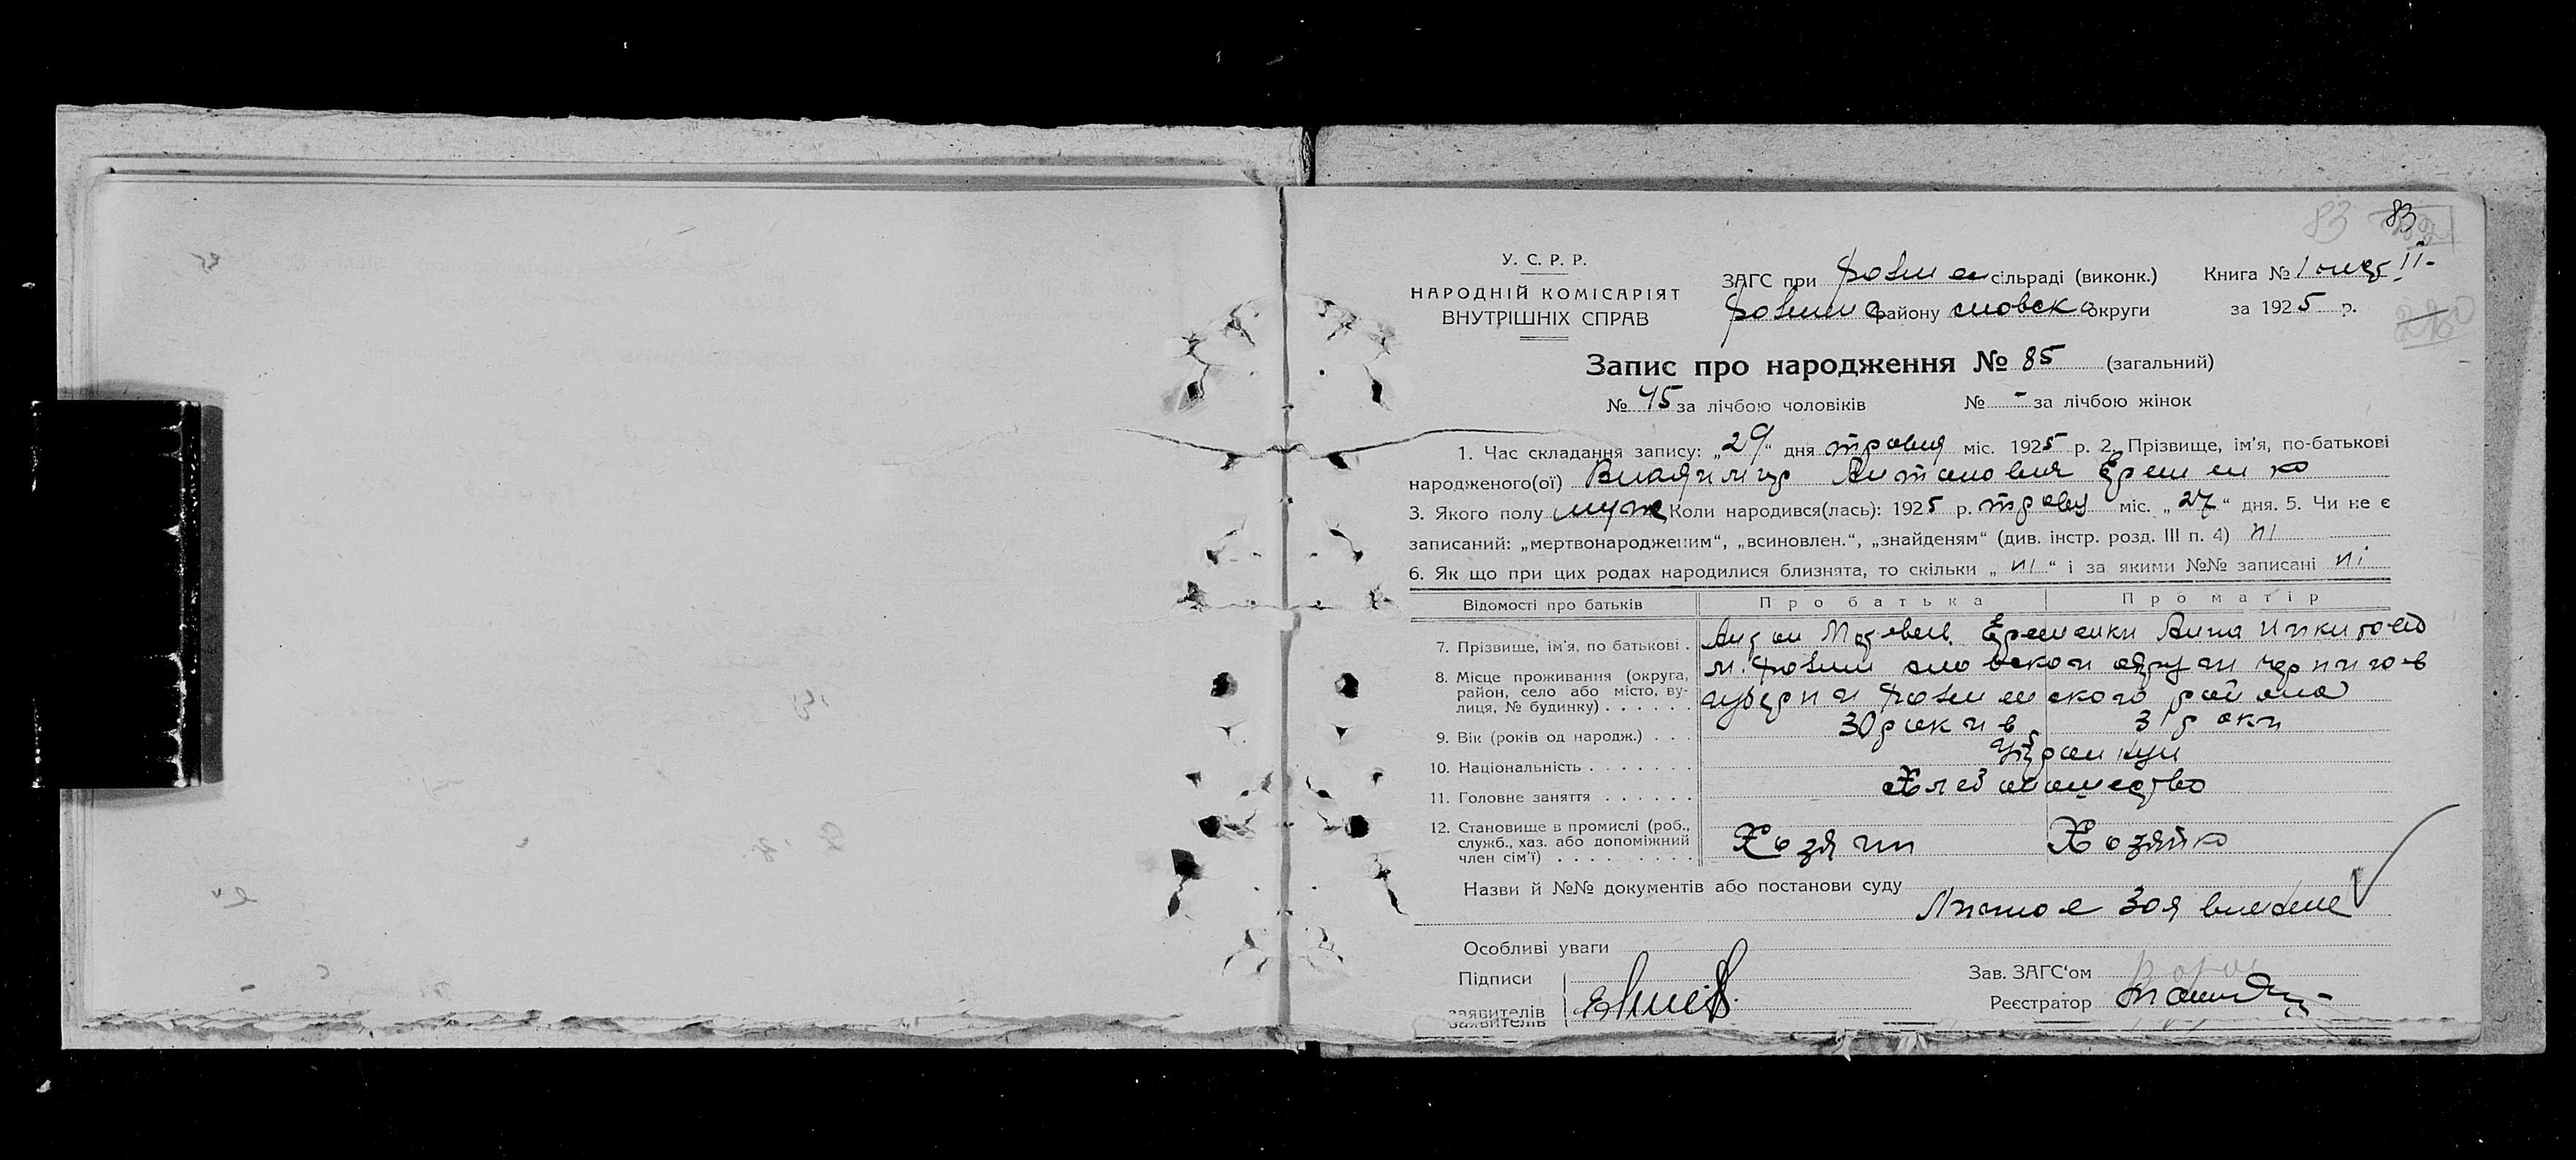 83 83
У. С. Р. Р.
НАРОДНІЙ КОМІСАРІЯТ
ВНУТРІШНІХ СПРАВ
ЗАГС при сільраді (виконк.) Книга № 1
району округи за 1925 р.
Запис про народження № 85 (загальний)
№ 45 за лічбою чоловіків № - за лічбою жінок
1. Час складання запису: „29“ дня травня міс. 1925 р. 2. Прізвище, ім'я, по-батькові
народженого(ої) Владимир Антонович Еременко
3. Якого полу муж Коли народився(лась): 1925 р. травня міс. „27“ дня. 5. Чи не є
записаний: „мертвонародженим“, „всиновлен.“, „знайденям“ (див. інстр. розд. III п. 4) ні
6. Як що при цих родах народилися близнята, то скільки „ні“ і за якими №№ записані ні
Відомості про батьків Про батька Про матір
7. Прізвище, ім'я, по батькові . Антон Еременки Анна Никитов
8. Місце проживання (округа,
район, село або місто, ву-
лиця, № будинку) . . . . . .
9. Вік (років од народж.) . . . 30 рокив 31 роки
10. Національність . . . . . . .
11. Головне заняття . . . . . . Хлебопашество
12. Становище в промислі (роб.,
служб., хаз. або допоміжний
член сім'ї) . . . . . . . . . Хозяин Хозяйка
Назви й №№ документів або постанови суду
Личное заявление
Особливі уваги
Підписи Зав. ЗАГС'ом
заявителів Реєстратор